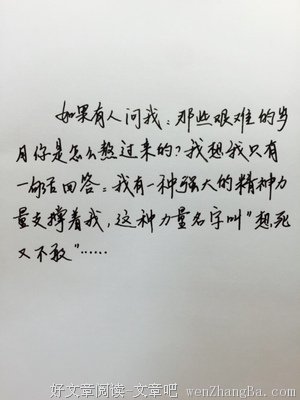 如果有人问我：那些艰难的岁
月你是怎么熬过来的？我想我只有
一句话回答：我有一种强大的精神力
量支撑着我，这种力量名字叫“想死
又不敢”……
好文章阅读-文章吧 wenZhangBa.com